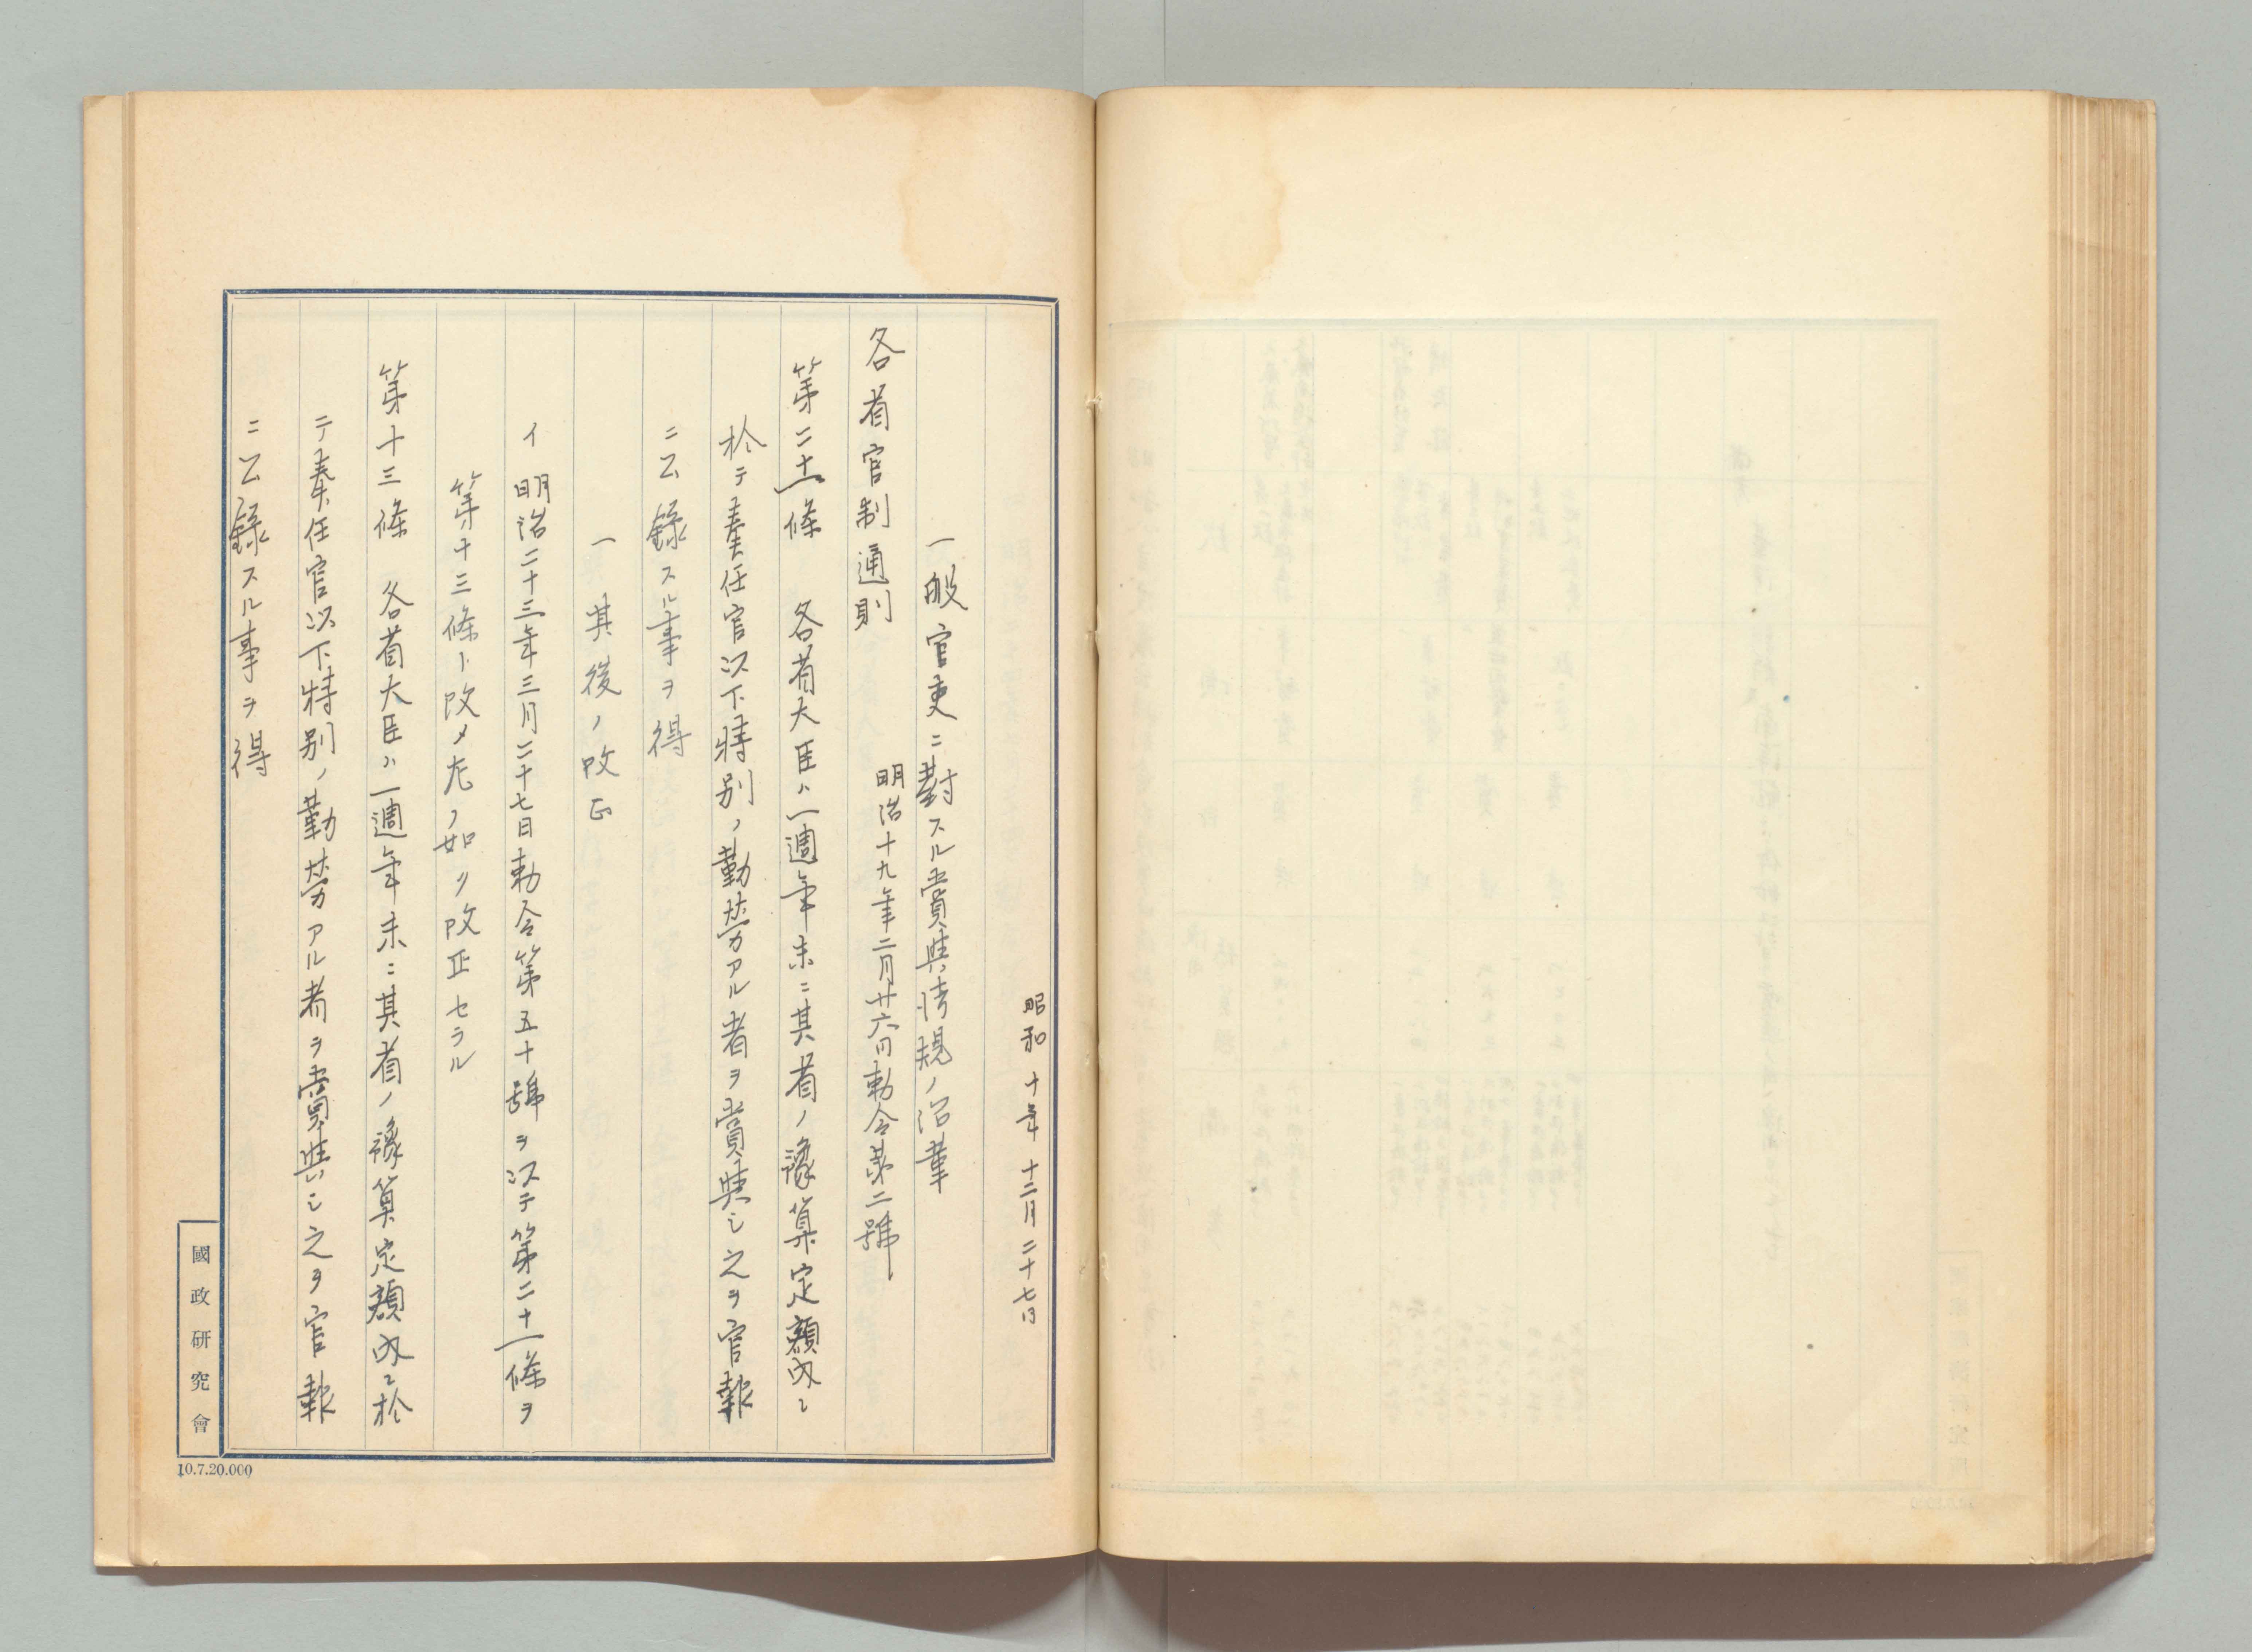 昭和十年十二月二十七日
一般官吏ニ對スル賞與ニ關スル法規ノ沿革
各省官制通則
明治十九年二月廿六日勅令第二號
第二十一條　各省大臣ハ一週年末ニ其省ノ豫算定額內ニ
於テ奏任官以下特別ノ勤勞アル者ヲ賞與シ之ヲ官報
ニ公錄スル事ヲ得
一其後ノ改正
イ明治二十三年三月二十七日勅令第五十號ヲ以テ第二十一條ヲ
第十三條ト改メ左ノ如ク改正セラル
第十三條　各省大臣ハ一週年末ニ其省ノ豫算定額內ニ於
テ奏任官以下特別ノ勤勞アル者ヲ賞與シ之ヲ官報
ニ公錄スル事ヲ得
國政研究會
10.7.20.000